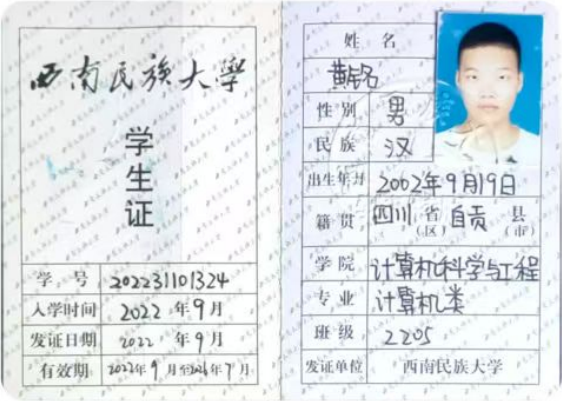 西南民族大學
学生证
学号 202231101324
入学时间 2022年9月
发证日期 2022年9月
有效期 2022年9月至2026年7月
姓名
黄铭
性别 男
民族 汉
出生年月 2002年9月19日
籍贯 四川省(区)自贡县(市)
学院 计算机科学与工程
专业 计算机类
班级 2205
发证单位 西南民族大学